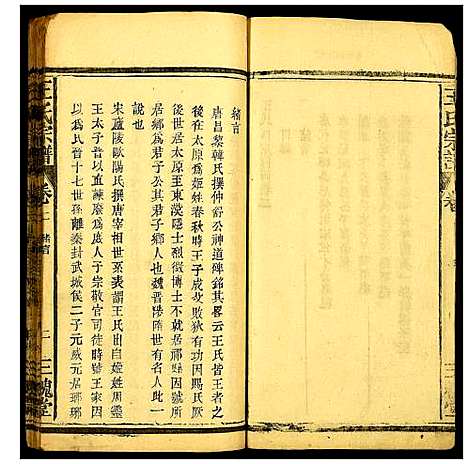 緒言
唐昌黎韓氏撰仲舒公神道碑銘其畧云王氏皆王者之
後在太原為姬姓春秋時王子成父敗狄有功因賜氏厥
後世居太原至東漢隱士烈徵博士不就居祁縣因號所
居鄉為君子公其君子鄉人也魏晉隋世有名人此一
說也
宋廬陵歐陽氏撰唐宰相世系表謂王氏出自姬姓周靈
王太子晉以直諫廢為庶人子宗敬官司徒時號王家因
以為氏晉十七世孫離秦封武城侯二子元威元居瑯琊
王氏宗譜
卷一
緒言
三槐堂
王氏宗譜
卷
三槐堂